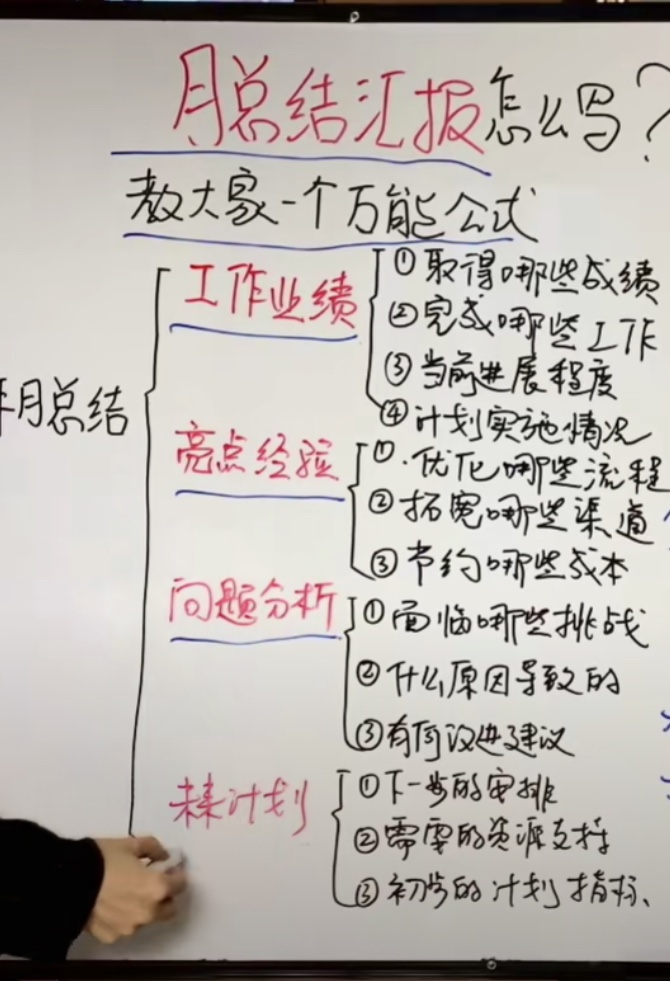 月总结汇报怎么写?
教大家一个万能公式
月总结
工作业绩
①取得哪些成绩
②完成哪些工作
③当前进展程度
④计划实施情况
亮点经验
①.优化哪些流程
②拓宽哪些渠道
③节约哪些成本
问题分析
①面临哪些挑战
②什么原因导致的
③有何改进建议
未来计划
①下一步的安排
②需要的资源支持
③初步的计划指标、